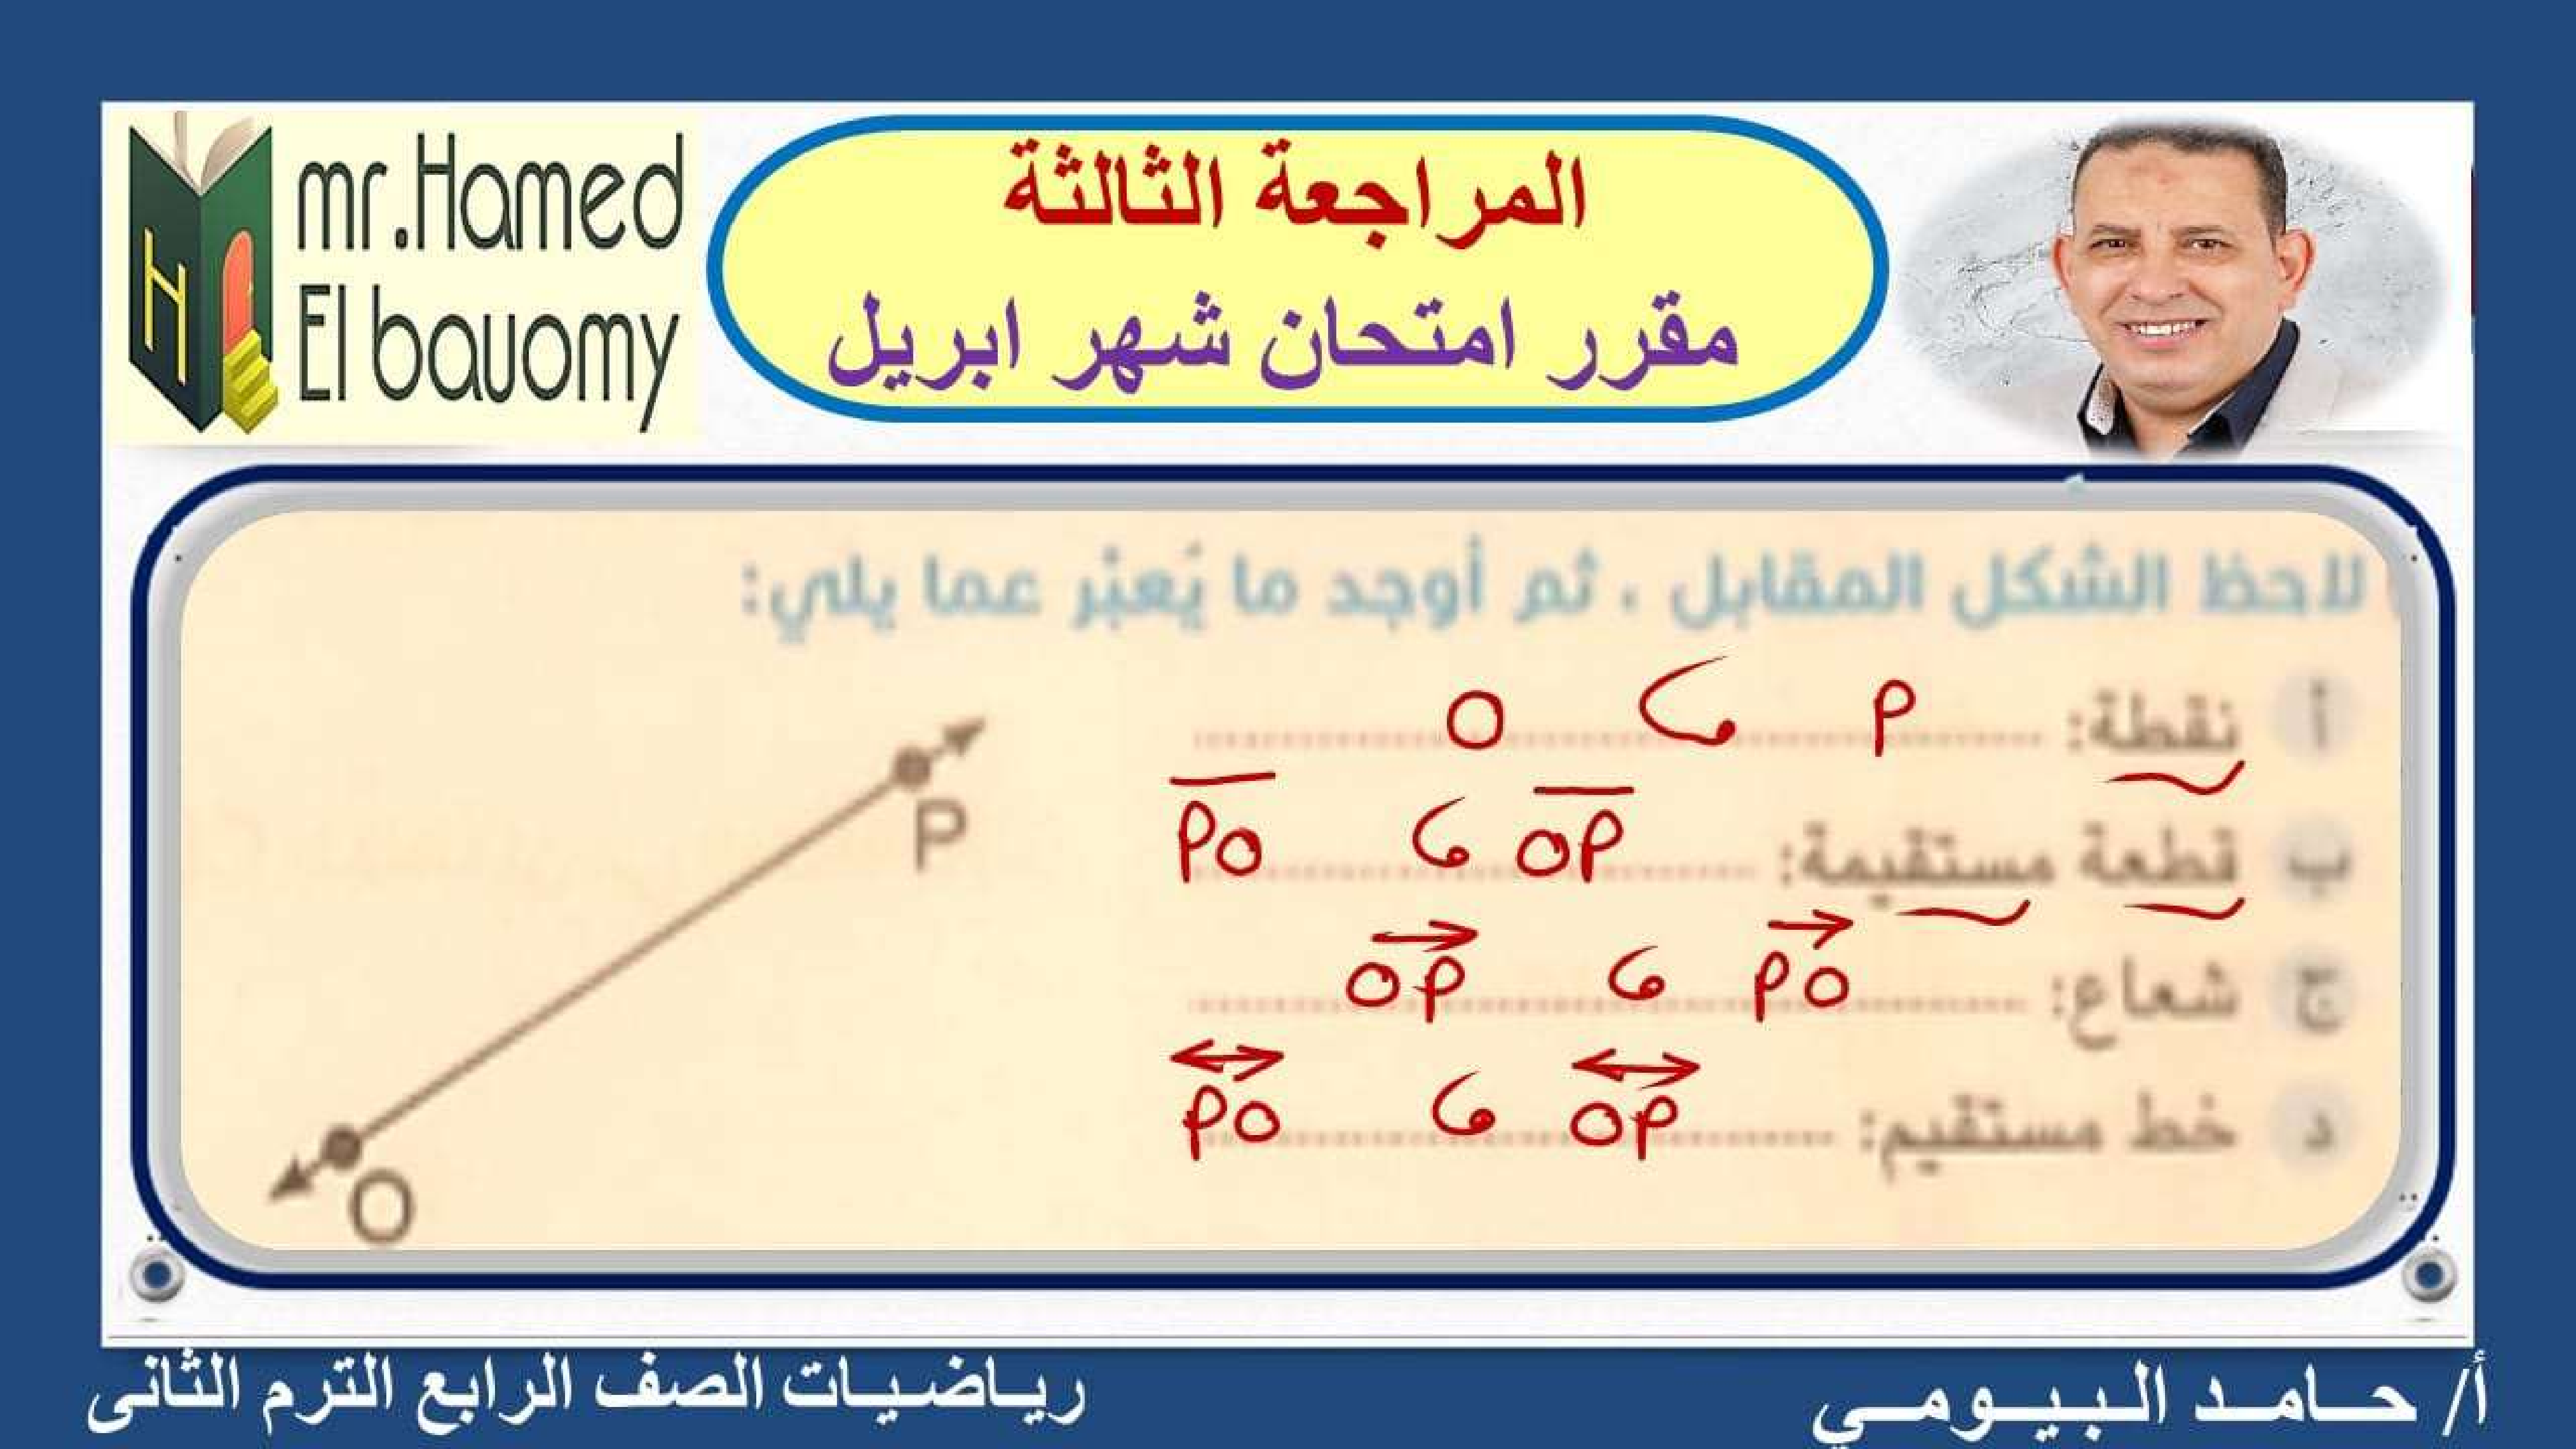 mr.Hamed
El bauomy
المراجعة الثالثة
مقرر امتحان شهر ابريل
لاحظ الشكل المقابل ، ثم أوجد ما يُعبِّر عما يلي:
أ نقطة: P ، O
ب قطعة مستقيمة: O͞P ، P͞O
ج شعاع: PO→ ، OP→
د خط مستقيم: OP↔ ، PO↔
P
O
أ/ حـامـد الـبـيـومـي
ريـاضـيـات الصف الرابع الترم الثانى